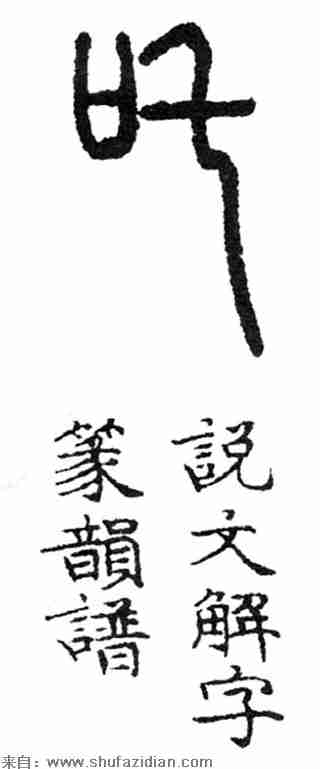 叱
説文解字
篆韻譜
来自：www.shufazidian.com